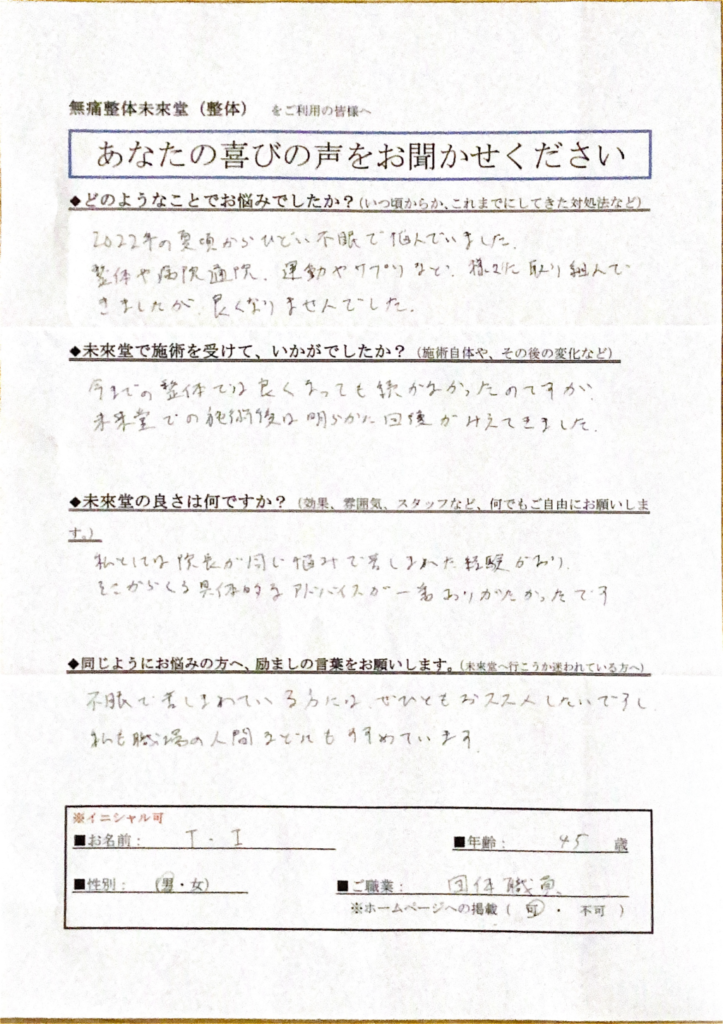 無痛整体未来堂（整体）　をご利用の皆様へ
あなたの喜びの声をお聞かせください
◆どのようなことでお悩みでしたか？（いつ頃からか、これまでにしてきた対処法など）
2022年の夏頃からひどい不眠で悩んでいました。
整体や病院通院、運動やサプリなど、様々に取り組んで
きましたが、良くなりませんでした。
◆未來堂で施術を受けて、いかがでしたか？（施術自体や、その後の変化など）
今までの整体では良くなっても続かなかったのですが、
未来堂での施術後は明らかに回復がみえてきました。
◆未來堂の良さは何ですか？（効果、雰囲気、スタッフなど、何でもご自由にお願いしま
す。）
私としては院長が同じ悩みで苦しまれた経験があり、
そこからくる具体的なアドバイスが一番ありがたかったです
◆同じようにお悩みの方へ、励ましの言葉をお願いします。（未來堂へ行こうか迷われている方へ）
不眠で苦しまれている方には、ぜひともおススメしたいですし、
私も職場の人間などにもすすめています。
※イニシャル可
■お名前：　T・I
■年齢：　45　歳
■性別：　（男・女）
■ご職業：　団体職員
※ホームページへの掲載（　可　・　不可　）